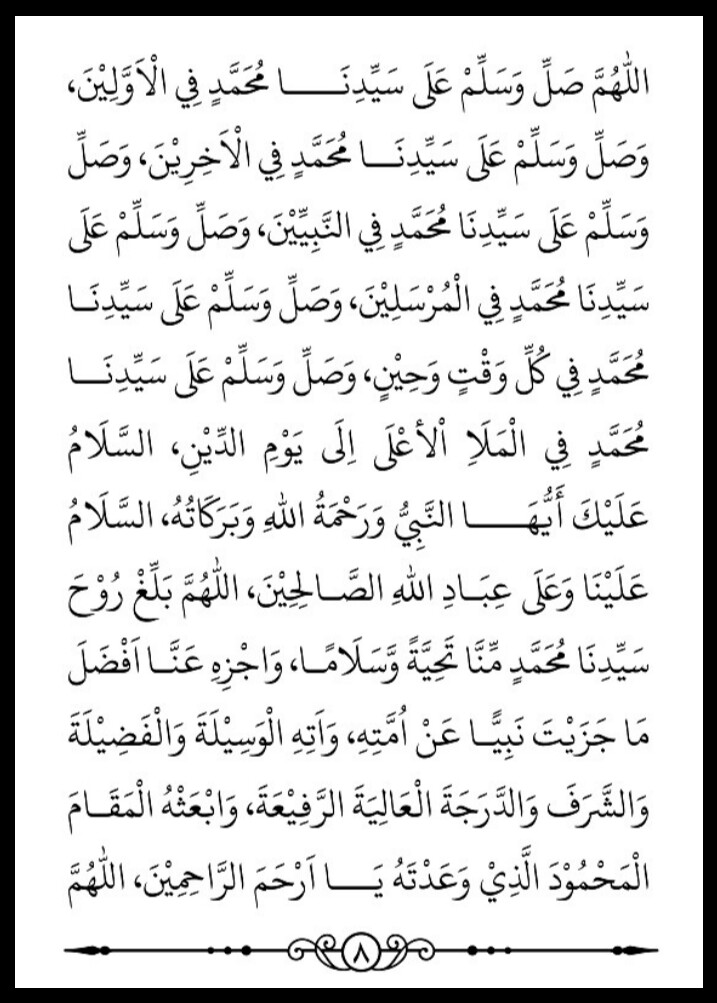 اللّٰهُمَّ صَلِّ وَسَلِّمْ عَلَى سَيِّدِنَـــــا مُحَمَّدٍ فِي الْاَوَّلِيْنَ،
وَصَلِّ وَسَلِّمْ عَلَى سَيِّدِنَـــا مُحَمَّدٍ فِي الْاَخِرِيْنَ، وَصَلِّ
وَسَلِّمْ عَلَى سَيِّدِنَا مُحَمَّدٍ فِي النَّبِيِّيْنَ، وَصَلِّ وَسَلِّمْ عَلَى
سَيِّدِنَا مُحَمَّدٍ فِي الْمُرْسَلِيْنَ، وَصَلِّ وَسَلِّمْ عَلَى سَيِّدِنَـا
مُحَمَّدٍ فِي كُلِّ وَقْتٍ وَحِيْنٍ، وَصَلِّ وَسَلِّمْ عَلَى سَيِّدِنَـــا
مُحَمَّدٍ فِي الْمَلَاِ الْأعْلَى اِلَى يَوْمِ الدِّيْنِ، السَّلَامُ
عَلَيْكَ أَيُّهَـــــا النَّبِيُّ وَرَحْمَةُ اللهِ وَبَرَكَاتُهُ، السَّلَامُ
عَلَيْنَا وَعَلَى عِبَـادِ اللهِ الصَّـالِحِيْنَ، اللّٰهُمَّ بَلِّغْ رُوْحَ
سَيِّدِنَا مُحَمَّدٍ مِّنَّا تَحِيَّةً وَّسَلَامًـا، وَاجْزِهِ عَنَّـا اَفْضَلَ
مَا جَزَيْتَ نَبِيًّـا عَنْ اُمَّتِهِ، وَاَتِهِ الْوَسِيْلَةَ وَالْفَضِيْلَةَ
وَالشَّرَفَ وَالدَّرَجَةَ الْعَالِيَةَ الرَّفِيْعَةَ، وَابْعَثْهُ الْمَقَـامَ
الْمَحْمُوْدَ الَّذِيْ وَعَدْتَهُ يَـــا اَرْحَمَ الرَّاحِمِيْنَ، اللّٰهُمَّ
٨